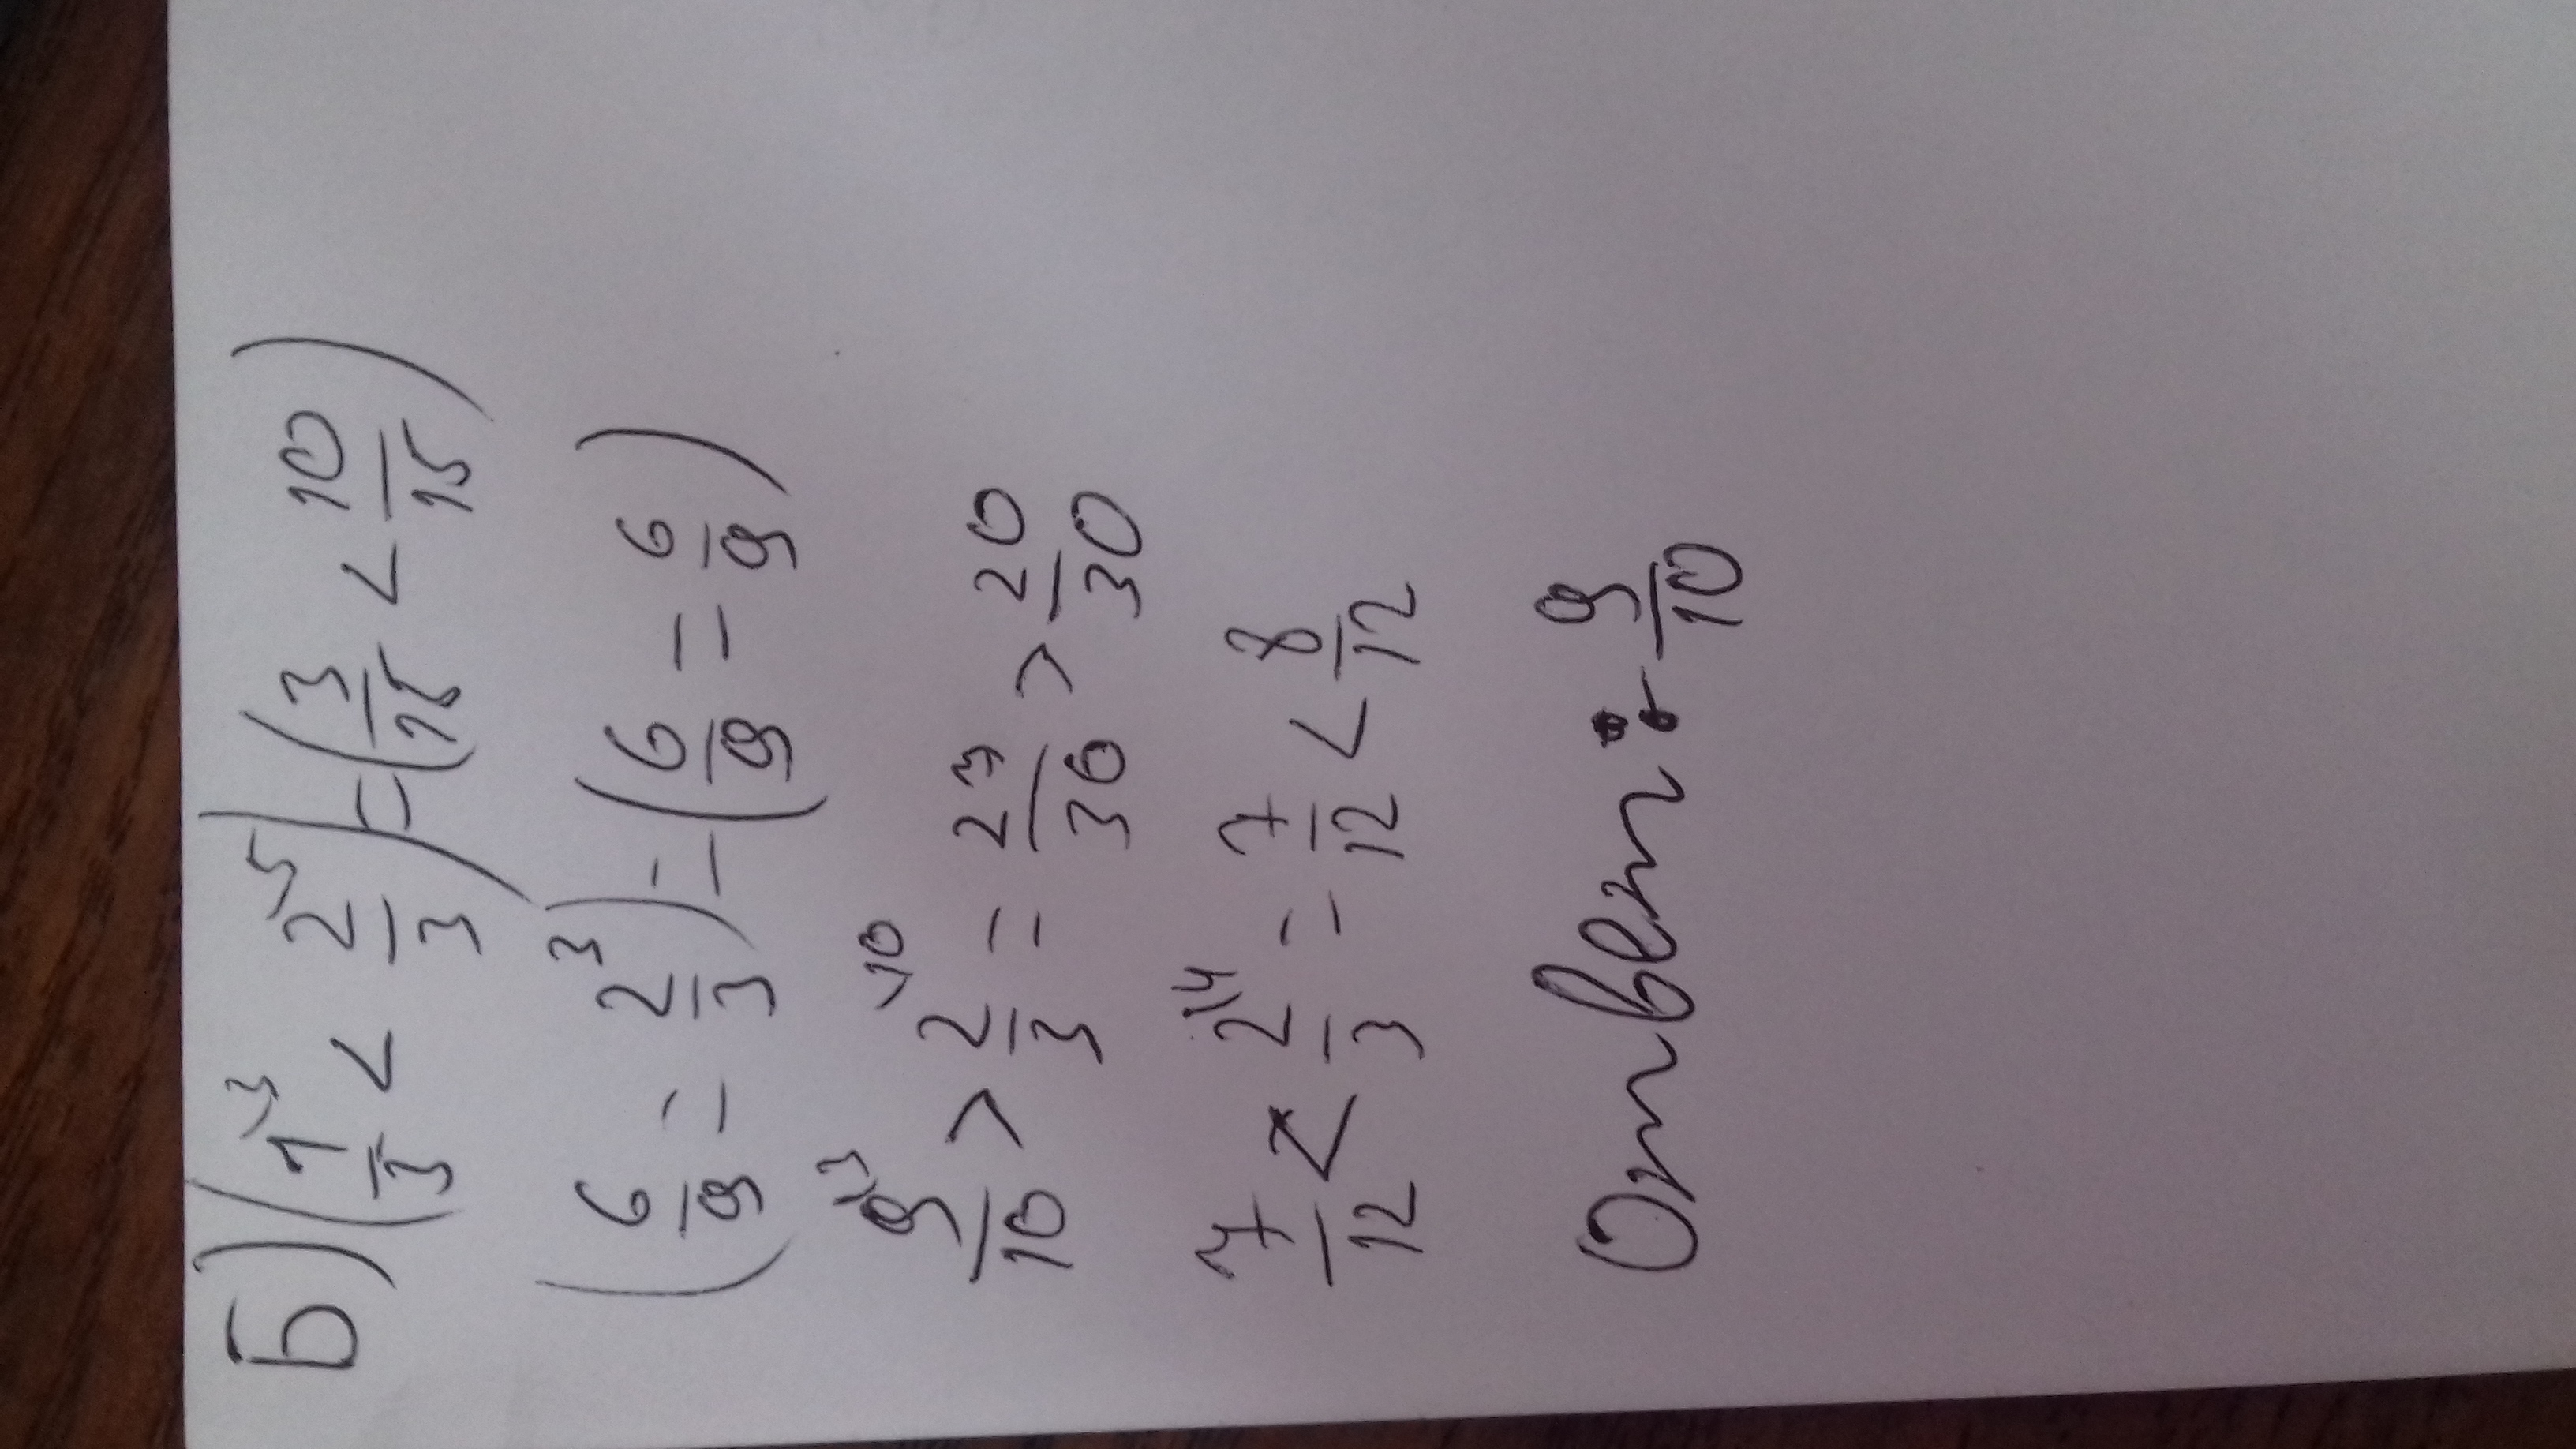 Б) (1\3/3 < 2\5/3) = (3/15 < 10/15)
(6/9 = 2\3/3) = (6/9 = 6/9)
9\3/10 > 2\10/3 = 27/30 > 20/30
7/12 < 2\4/3 = 7/12 < 8/12
Ответ: 9/10